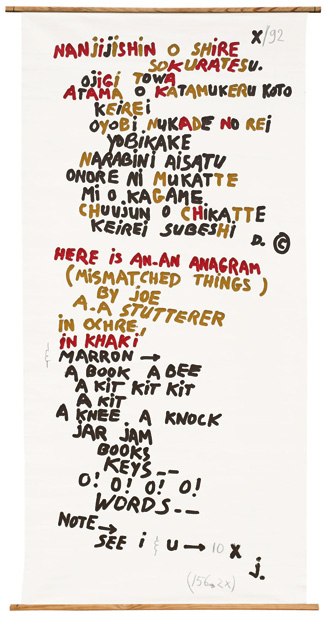 x/92
NANJIJISHIN O SHIRE
SOKURATESU.
OJIGI TOWA
ATAMA O KATAMUKERU KOTO
KEIREI
OYOBI NUKADE NO REI
YOBIKAKE
NARABINI AISATU
ONORE NI MUKATTE
MI O KAGAME.
CHUUJUN O CHIKATTE
KEIREI SUBESHI
D. ©
HERE iS AN-AN ANAGRAM
(MiSMATCHED THINGS )
BY JOE
A-A STUTTERER
iN OCHRE!
iN KHAKi
MARRON →
A BOOK A BEE
A KiT KiT KiT
A KiT
A KNEE A KNOCK
JAR JAM
BOOKS
KEYS --
O! O! O! O!
WORDS --
NOTE →
SEE i & U → 10 X
j.